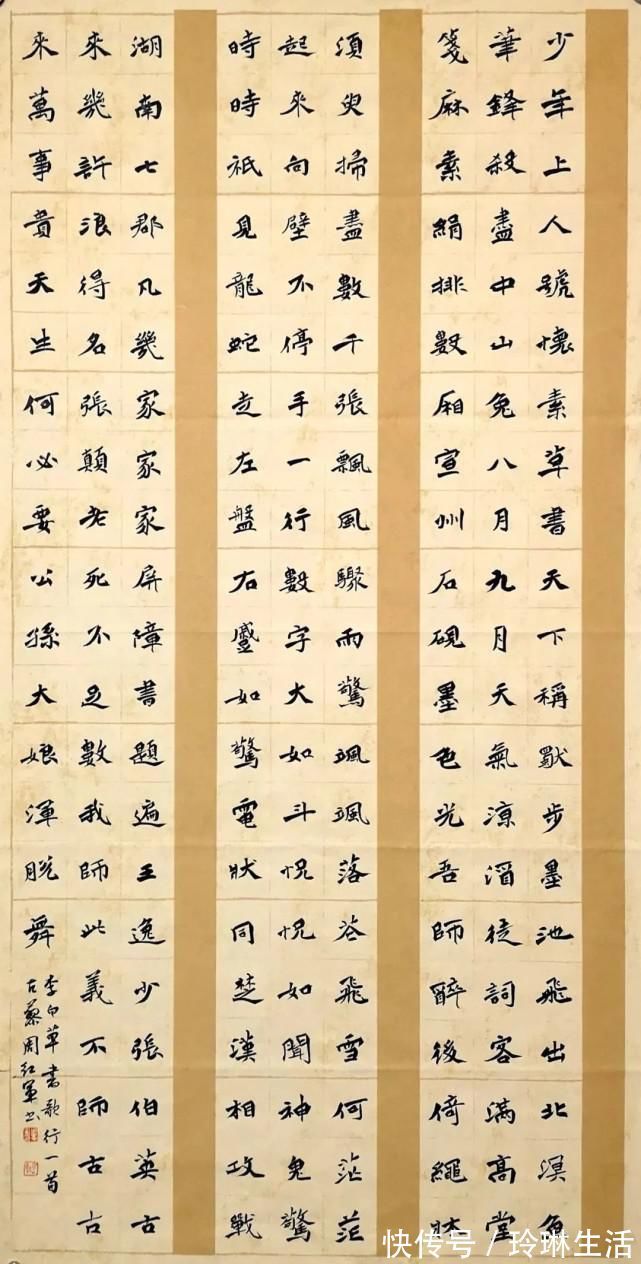 少年上人號懷素草書天下稱獨步墨池飛出北溟魚
筆鋒殺盡中山兔八月九月天氣涼酒徒詞客滿高堂
箋麻素絹排數廂宣州石硯墨色光吾師醉後倚繩牀
須臾掃盡數千張飄風驟雨驚颯颯落花飛雪何茫茫
起來向壁不停手一行數字大如斗怳怳如聞神鬼驚
時時祇見龍蛇走左盤右蹙如驚電狀同楚漢相攻戰
湖南七郡凡幾家家家屏障書題遍王逸少張伯英古
來幾許浪得名張顛老死不足數我師此義不師古古
來萬事貴天生何必要公孫大娘渾脫舞
李白草書歌行一首
古蔡周紅軍书
快传号/玲琳生活